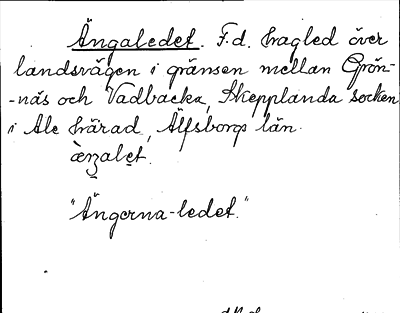 Ängaledet. F.d. hagled över
landsvägen i gränsen mellan Grön-
-näs och Vadbacka, Skepplanda socken
i Ale härad, Älfsborgs län.
"Ängerna-ledet."